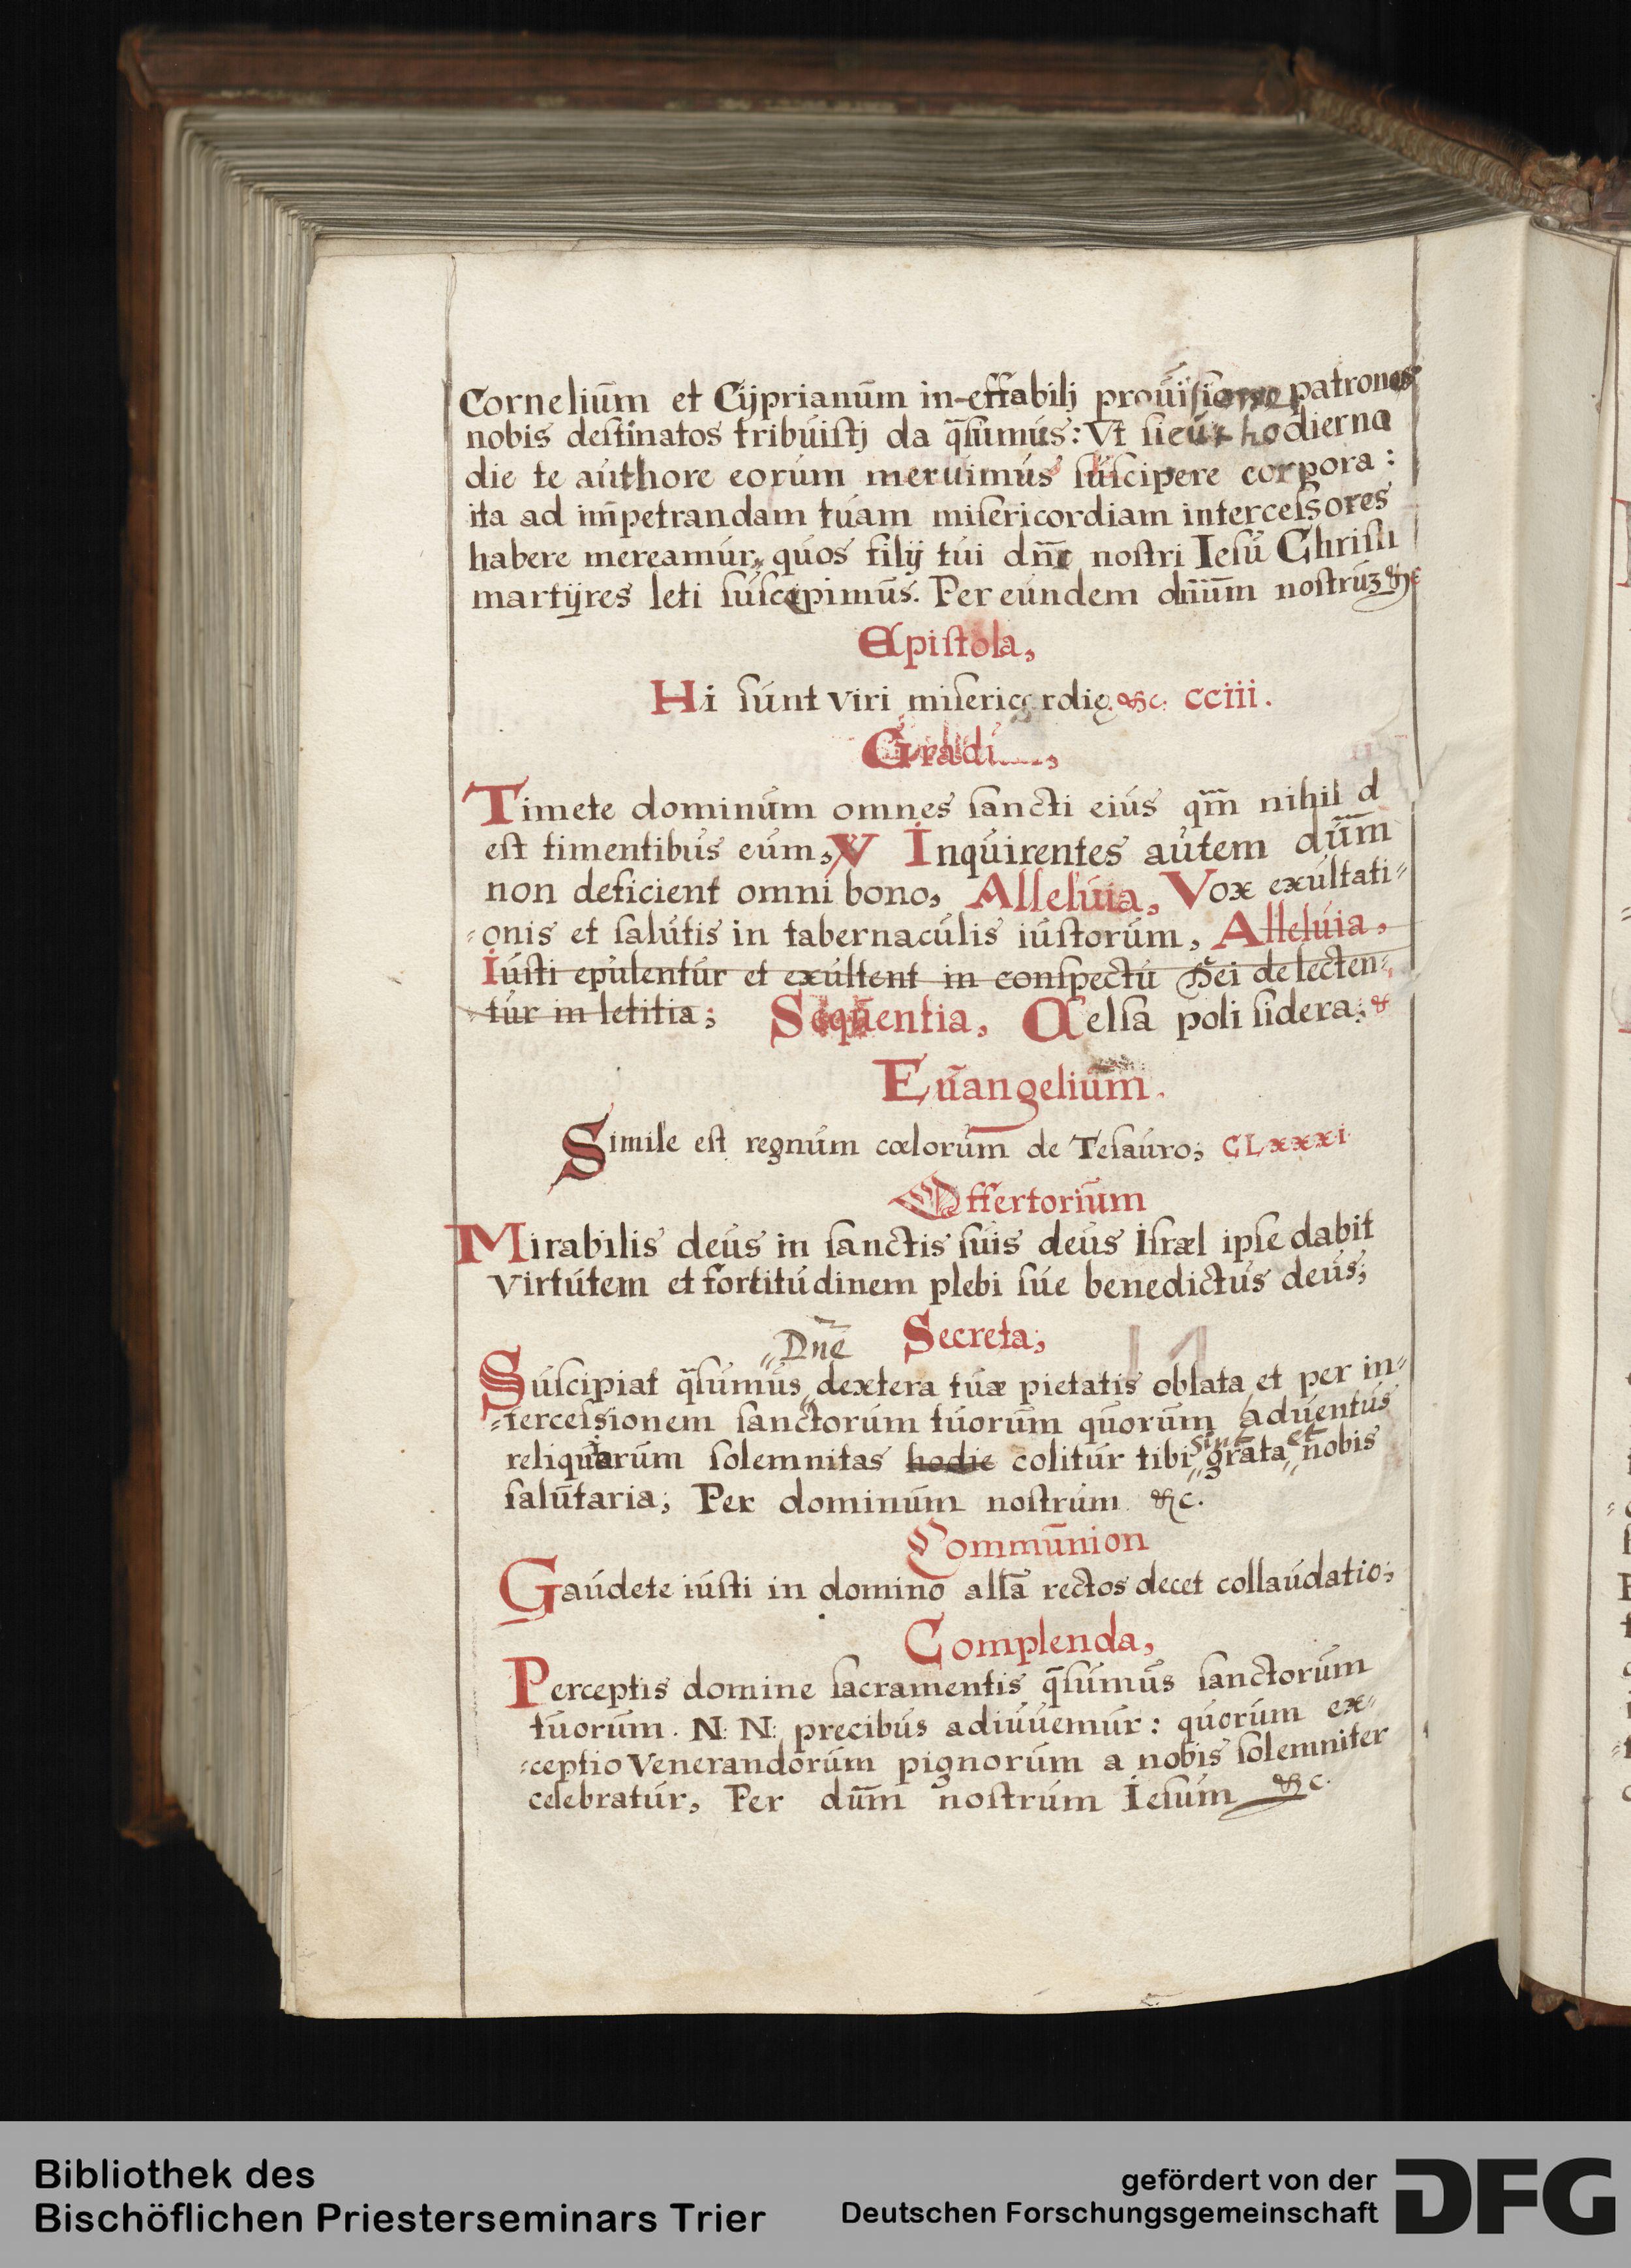 Cornelium̄ et Cijprianum̄ in-effabilj prouisione patrones
nobis destinatos tribuistj da q̄sumus: Vt sicut hodierna
die te authore eorum meruimus suscipere corpora:
ita ad im̄petrandam tuam misericordiam intercessores
habere mereamur, quos filij tui dn̄i nostri Iesu Christi
martijres leti suscepimus. Per eundem dn̄um̄ nostruʒ &c
Epistola,
Hi sunt viri misericordie &c. cciii.
Gradu
Timete dominum omnes sancti eius qm̄ nihil d
est timentibus eum, V Inquirentes autem dum̄
non deficient omni bono, Alleluia, Vox exultati=
=onis et salutis in tabernaculis iustorum, Alleluia,
Iusti epulentur et exultent in conspectu Dei delecten=
tur in letitia; Sequentia, Celsa poli sidera; &
Euangelium.
Simile est regnum cœlorum de Tesauro; CLxxxi.
Offertorium
Mirabilis deus in sanctis suis deus Isræl ipse dabit
virtutem et fortitudinem plebi sue benedictus deus;
Secreta;
Dn̄e
Suscipiat q̄sumus dextera tuæ pietatis oblata et per in=
=tercessionem sanctorum tuorum quorum aduentus
sint et
reliquiarum solemnitas hodie colitur tibi grata nobis
salutaria; Per dominum nostrum &c.
Communion
Gaudete iusti in domino all̄a rectos decet collaudatio;
Complenda,
Perceptis domine sacramentis q̄sumus sanctorum
tuorum. N: N: precibus adiuuemur: quorum ex=
=ceptio Venerandorum pignorum a nobis solemniter
celebratur, Per dum̄ nostrum Iesum &c.
Bibliothek des
Bischöflichen Priesterseminars Trier
gefördert von der
Deutschen Forschungsgemeinschaft
DFG